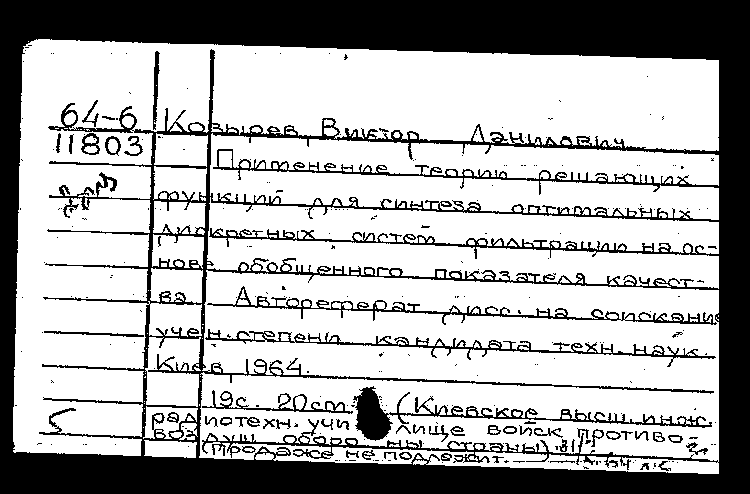 64-6 Козырев, Виктор Данилович
11803
Применение теории решающих
функций для синтеза оптимальных
дискретных систем фильтрации на ос-
нове обобщенного показателя качест-
ва. Автореферат дисс. на соискание
учен. степени кандидата техн. наук.
Киев, 1964.
19с. 20см (Киевское высш. инж.
5 радиотехн. училище войск противо-
воздуш обороны страны)
(Продаже не подлежит.